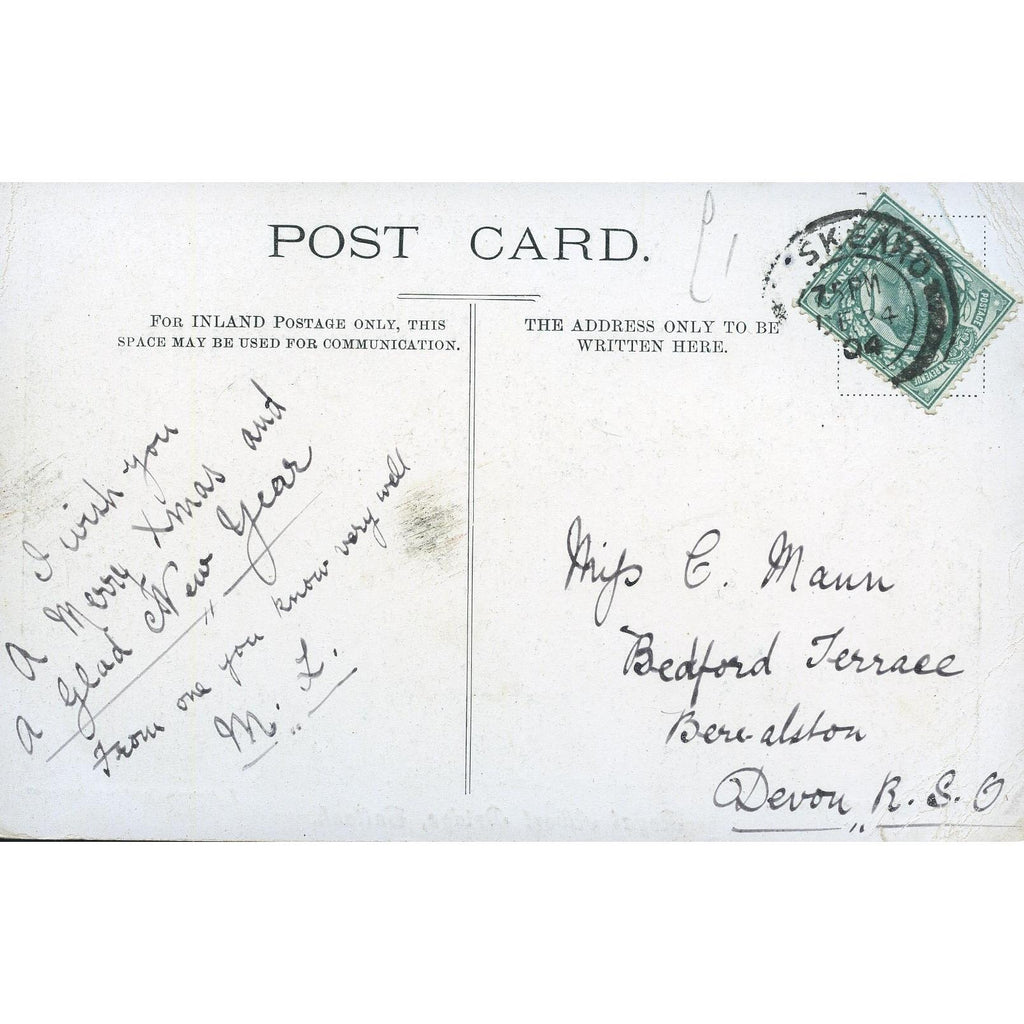 POST CARD.
FOR INLAND POSTAGE ONLY, THIS
SPACE MAY BE USED FOR COMMUNICATION.
THE ADDRESS ONLY TO BE
WRITTEN HERE.
I wish you
A Merry Xmas and
A Glad New Year
From one you know very well
M. L.
Miss C. Mann
Bedford Terrace
Bere-alston
Devon R.S.O.
SKEARD
PM
04
POSTAGE
& REVENUE
£1